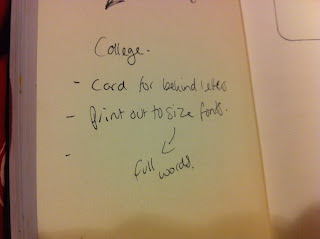 College.
- Card for behind letters
- Print out to size fonts.
-
full words.